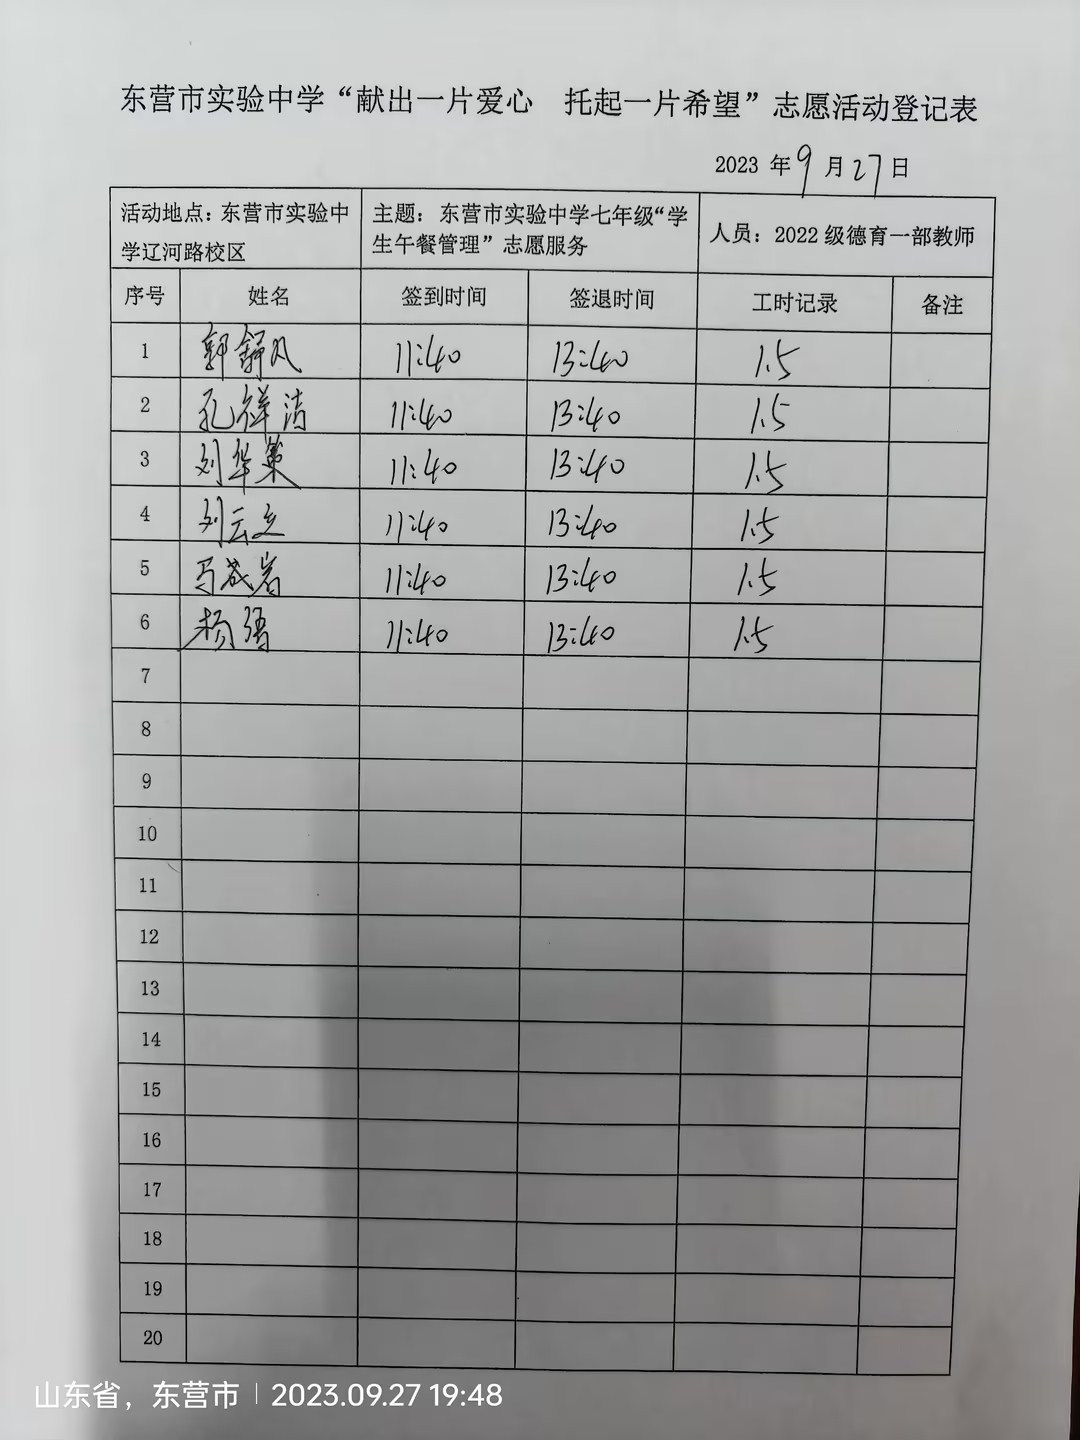 东营市实验中学“献出一片爱心 托起一片希望”志愿活动登记表
2023 年 9 月 27 日
活动地点：东营市实验中
学辽河路校区
主题：东营市实验中学七年级“学
生午餐管理”志愿服务
人员：2022 级德育一部教师
序号 姓名 签到时间 签退时间 工时记录 备注
1 郭舒凡 11:40 13:40 1.5
2 孔祥洁 11:40 13:40 1.5
3 刘华策 11:40 13:40 1.5
4 刘云 11:40 13:40 1.5
5 马成岩 11:40 13:40 1.5
6 杨 11:40 13:40 1.5
7
8
9
10
11
12
13
14
15
16
17
18
19
20
山东省，东营市 | 2023.09.27 19:48